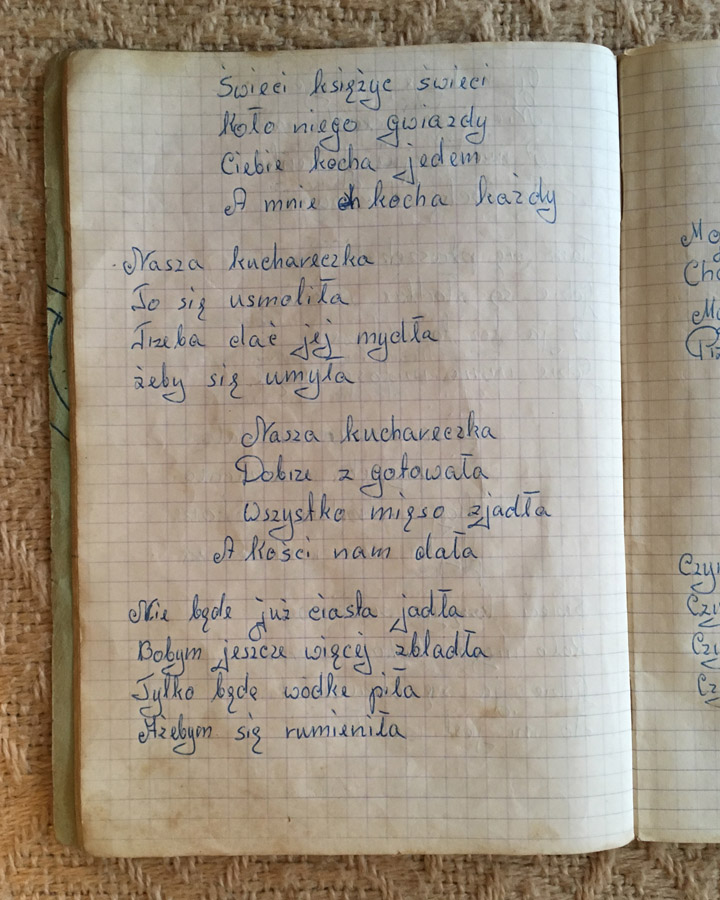 Święci księżyc święci
Koło niego gwiazdy
Ciebie kocha jedem
A mnie kocha każdy
Nasza kuchareczka
To się usmoliła
Trzeba dać jej mydła
żeby się umyła
Nasza kuchareczka
Dobrze z gotowała
Wszystko mięso zjadła
A kości nam dała
Nie będe już ciasta jadła
Bobym jeszcze więcej zbladła
Tylko będe wódke piła
Ażebym się rumieniła